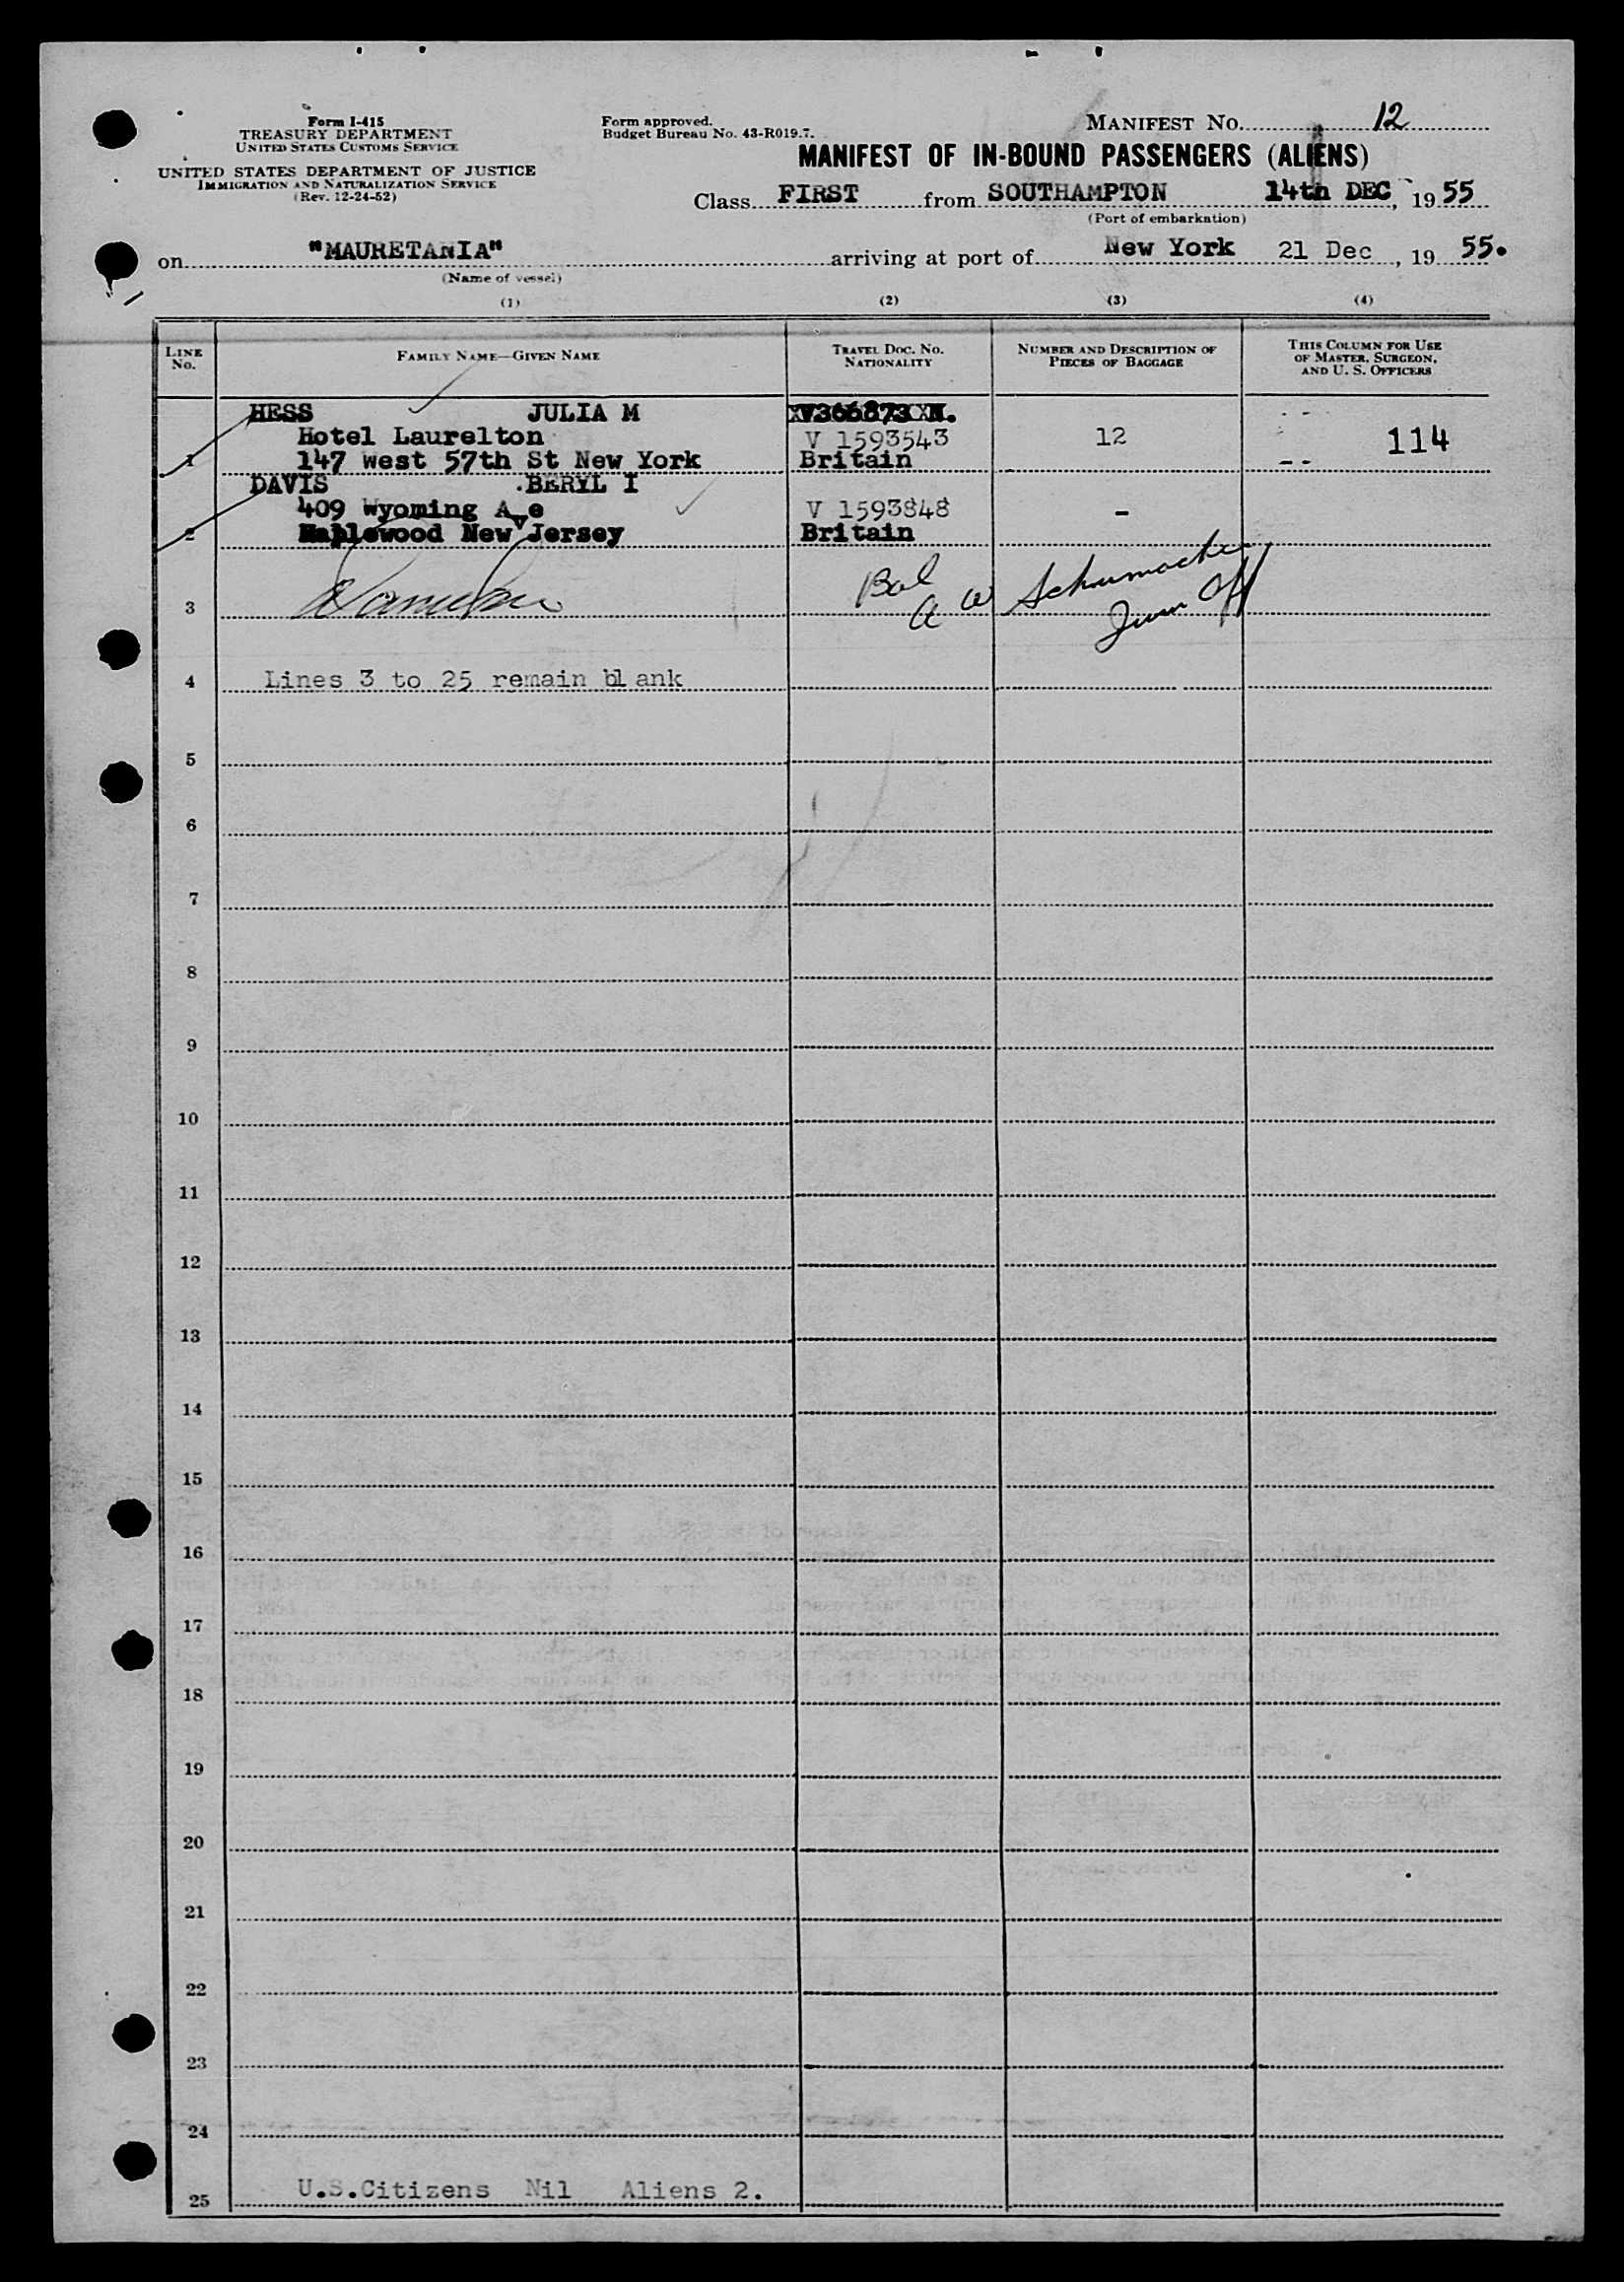 Form I-415
TREASURY DEPARTMENT
UNITED STATES CUSTOMS SERVICE
UNITED STATES DEPARTMENT OF JUSTICE
IMMIGRATION AND NATURALIZATION SERVICE
(Rev. 12-24-52)
Form approved.
Budget Bureau No. 43-R019.7.
MANIFEST NO. 12
MANIFEST OF IN-BOUND PASSENGERS (ALIENS)
Class FIRST from SOUTHAMPTON 14th DEC, 1955
(Port of embarkation)
on "MAURETANIA" arriving at port of New York 21 Dec, 19 55.
(Name of vessel)
(1) (2) (3) (4)
LINE No. FAMILY NAME—GIVEN NAME TRAVEL DOC. NO. NATIONALITY NUMBER AND DESCRIPTION OF PIECES OF BAGGAGE THIS COLUMN FOR USE OF MASTER, SURGEON, AND U. S. OFFICERS
HESS JULIA M XV366873XXN.
Hotel Laurelton V 1593543 12 114
1 147 West 57th St New York Britain
DAVIS BERYL I
409 Wyoming Ave V 1593848 -
2 Maplewood New Jersey Britain
Bal
A W Schumacher
3
4 Lines 3 to 25 remain blank
5
6
7
8
9
10
11
12
13
14
15
16
17
18
19
20
21
22
23
24
25 U.S.Citizens Nil Aliens 2.